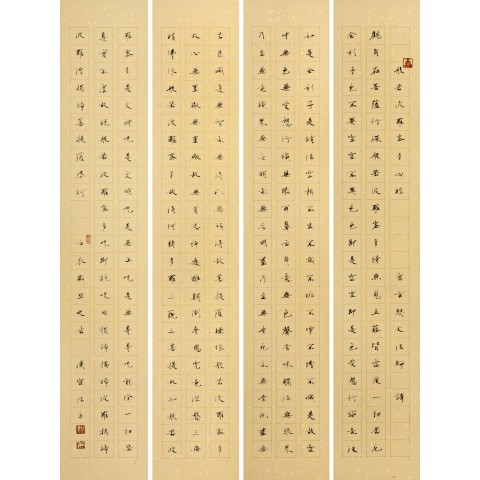 般若波羅蜜多心經 唐玄奘大法師譯
觀自在菩薩行深般若波羅蜜多時照見五蘊皆空度一切苦厄
舍利子色不異空空不異色色即是空空即是色受想行識亦復
如是舍利子是諸法空相不生不滅不垢不淨不增不減是故空
中無色無受想行識無眼耳鼻舌身意無色聲香味觸法無眼界
乃至無意識界無無明亦無無明盡乃至無老死亦無老死盡無
苦集滅道無智亦無得以無所得故菩提薩埵依般若波羅蜜多
故心無罣礙無罣礙故無有恐怖遠離顛倒夢想究竟涅槃三世
諸佛依般若波羅蜜多故得阿耨多羅三藐三菩提故知般若波
羅蜜多是大神咒是大明咒是無上咒是無等等咒能除一切苦
真實不虛故說般若波羅蜜多咒即說咒曰揭諦揭諦波羅揭諦
波羅僧揭諦菩提薩婆訶